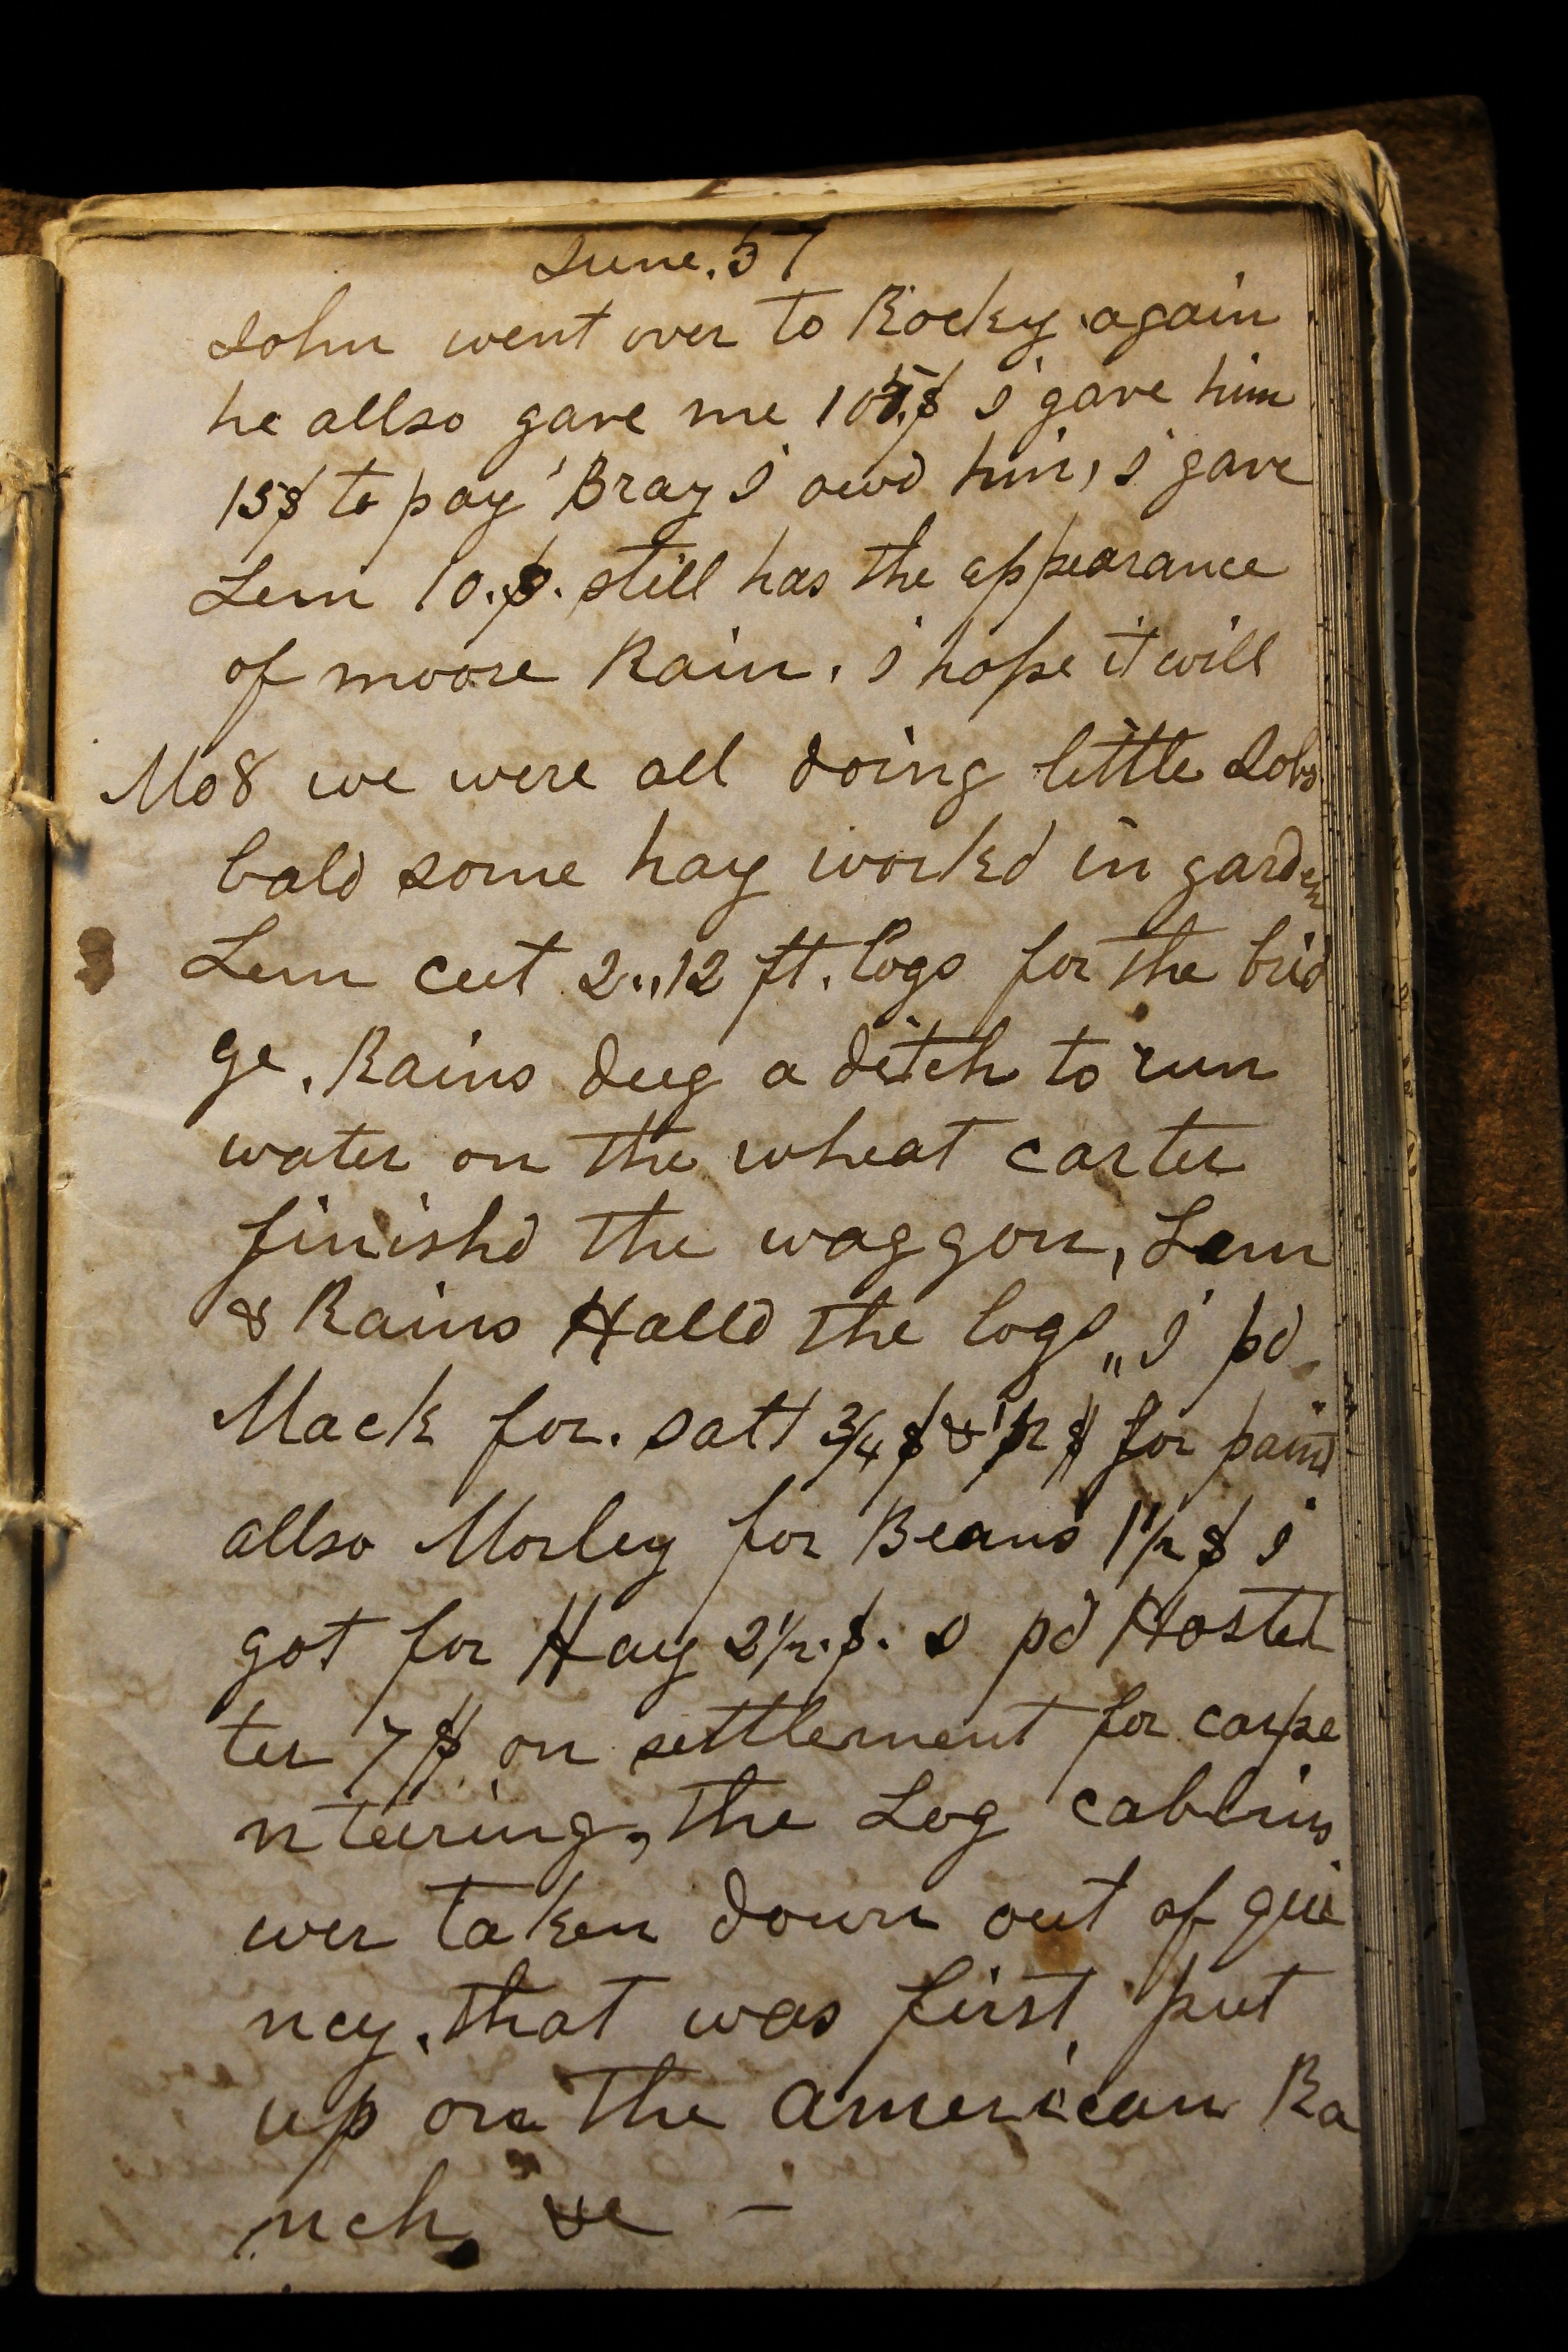 June. 57
John went over to Rocky again
he allso gave me 105$ I gave him
15$ to pay Bray I owd him, I gave
Lem 10.$. still has the appearance
of moore Rain, I hope it will
Mo8 we were all doing little Jobs
bald some hay workd in garden
Lem cut 2,,12 ft. logs for the brid
ge. Rains dug a ditch to run
water on the wheat carter
finishd the waggon, Lem
& Rains Halld the logs,, I pd
Mack for. salt 3/4 $ & 1/2 $ for paint
allso Morley for Beans 1 1/2 $ I
got for Hay 2 1/2.$. I pd Hostet
ter 7$ on settlement for carpe
ntering, the Log cabbins
wer taken down out of qui
ncy, that was first put
up on the American Ra
nch &c —